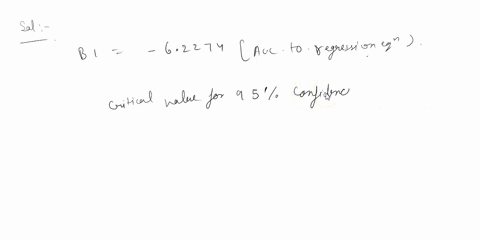 Sol:-
B1 = -6.2274 [Acc. to regression eqⁿ).
Critical value for 95% Confidenc